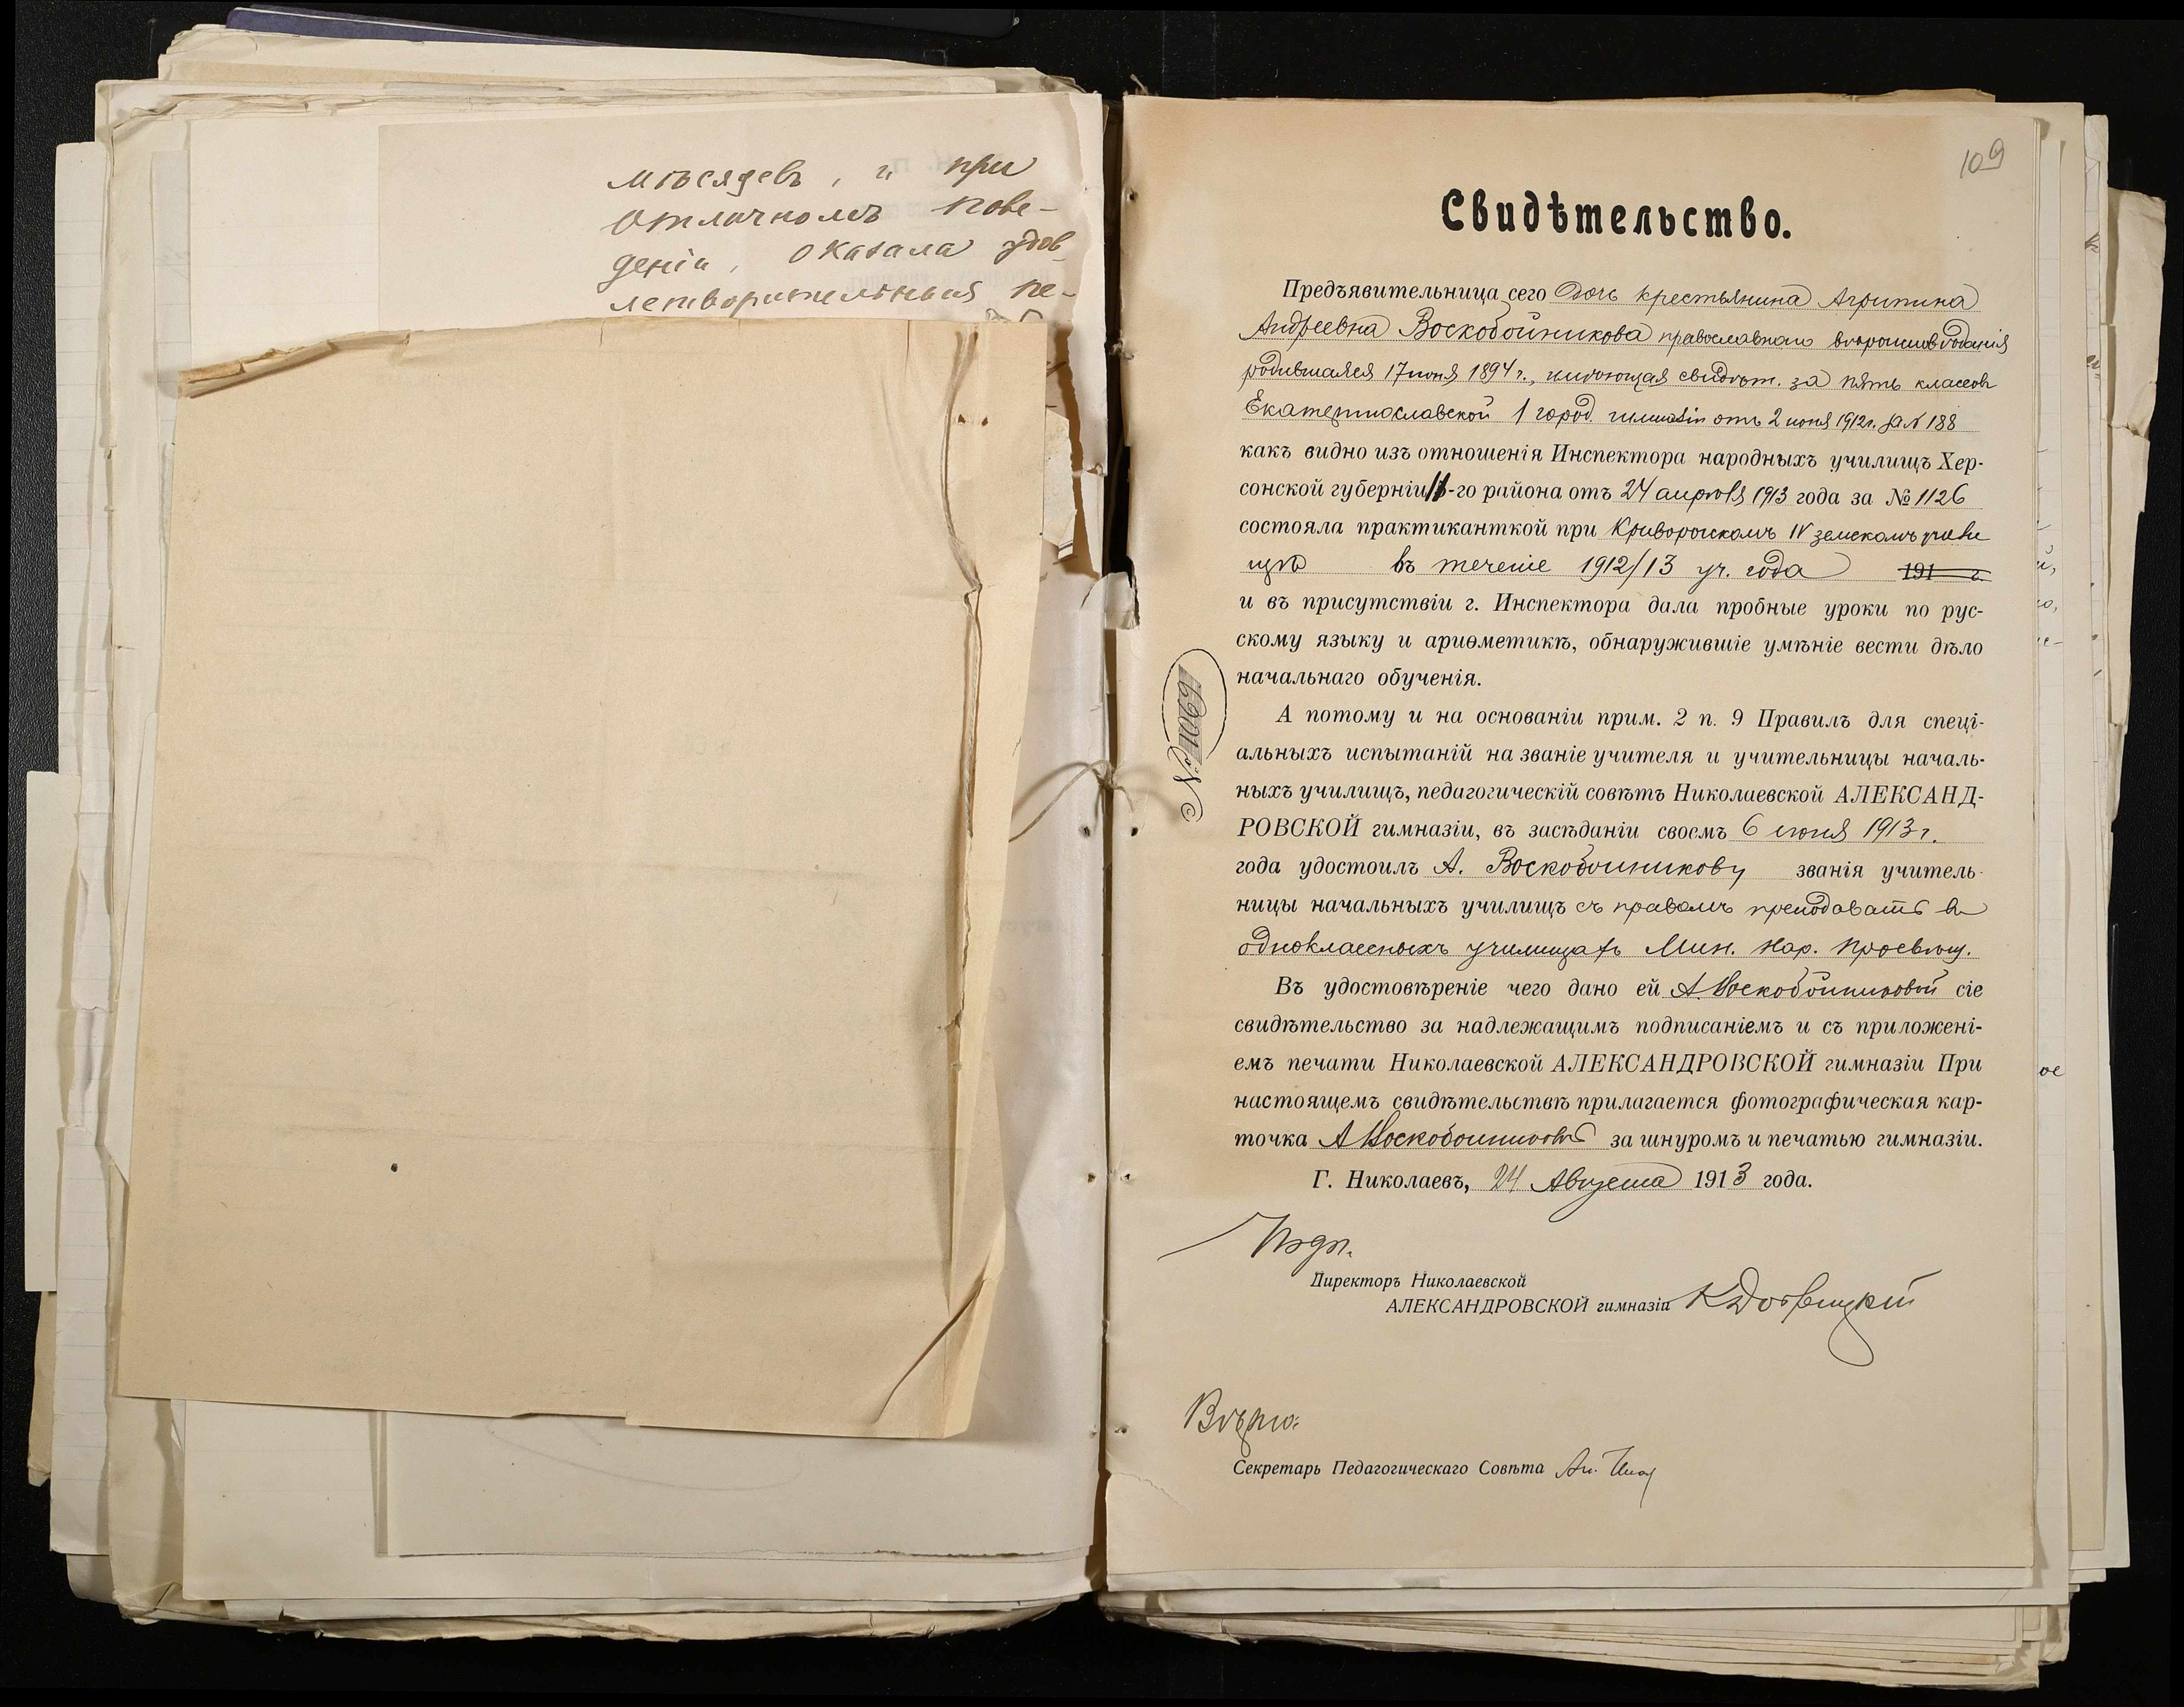 мѣсяцевъ, и при
отличномъ пове-
деніи, оказала удов-
летворительныя пе-
109
Свидѣтельство.
Предъявительница сего дочь крестьянина Агрипина
Андреевна Воскобойникова православнаго вѣроисповѣданія
родившаяся 17 іюня 1894 г., имѣющая свидѣт. за пять классовъ
Екатеринославской 1 город. гимназіи отъ 2 іюня 1912 г. за № 188
какъ видно изъ отношенія Инспектора народныхъ училищъ Хер-
сонской губерніи -го района отъ 24 апрѣля 1913 года за № 1126
состояла практиканткой при Криворожскомъ IV земскомъ учили
щѣ въ теченіе 1912/13 уч. года 191 г.
и въ присутствіи г. Инспектора дала пробные уроки по рус-
скому языку и ариѳметикѣ, обнаружившіе умѣніе вести дѣло
начальнаго обученія.
А потому и на основаніи прим. 2 п. 9 Правилъ для спеці-
альныхъ испытаній на званіе учителя и учительницы началь-
ныхъ училищъ, педагогическій совѣтъ Николаевской АЛЕКСАНД-
РОВСКОЙ гимназіи, въ засѣданіи своемъ 6 іюня 1913 г.
года удостоилъ А. Воскобойникову званія учитель-
ницы начальныхъ училищъ съ правомъ преподавать въ
одноклассныхъ училищахъ Мин. Нар. Просвѣщ.
Въ удостовѣреніе чего дано ей А. Воскобойниковой сіе
свидѣтельство за надлежащимъ подписаніемъ и съ приложені-
емъ печати Николаевской АЛЕКСАНДРОВСКОЙ гимназіи При
настоящемъ свидѣтельствѣ прилагается фотографическая кар-
точка А Воскобойниковой за шнуромъ и печатью гимназіи.
Г. Николаевъ, 24 Августа 1913 года.
Подп.
Директоръ Николаевской
АЛЕКСАНДРОВСКОЙ гимназіи
Вѣрно:
Секретарь Педагогическаго Совѣта
№